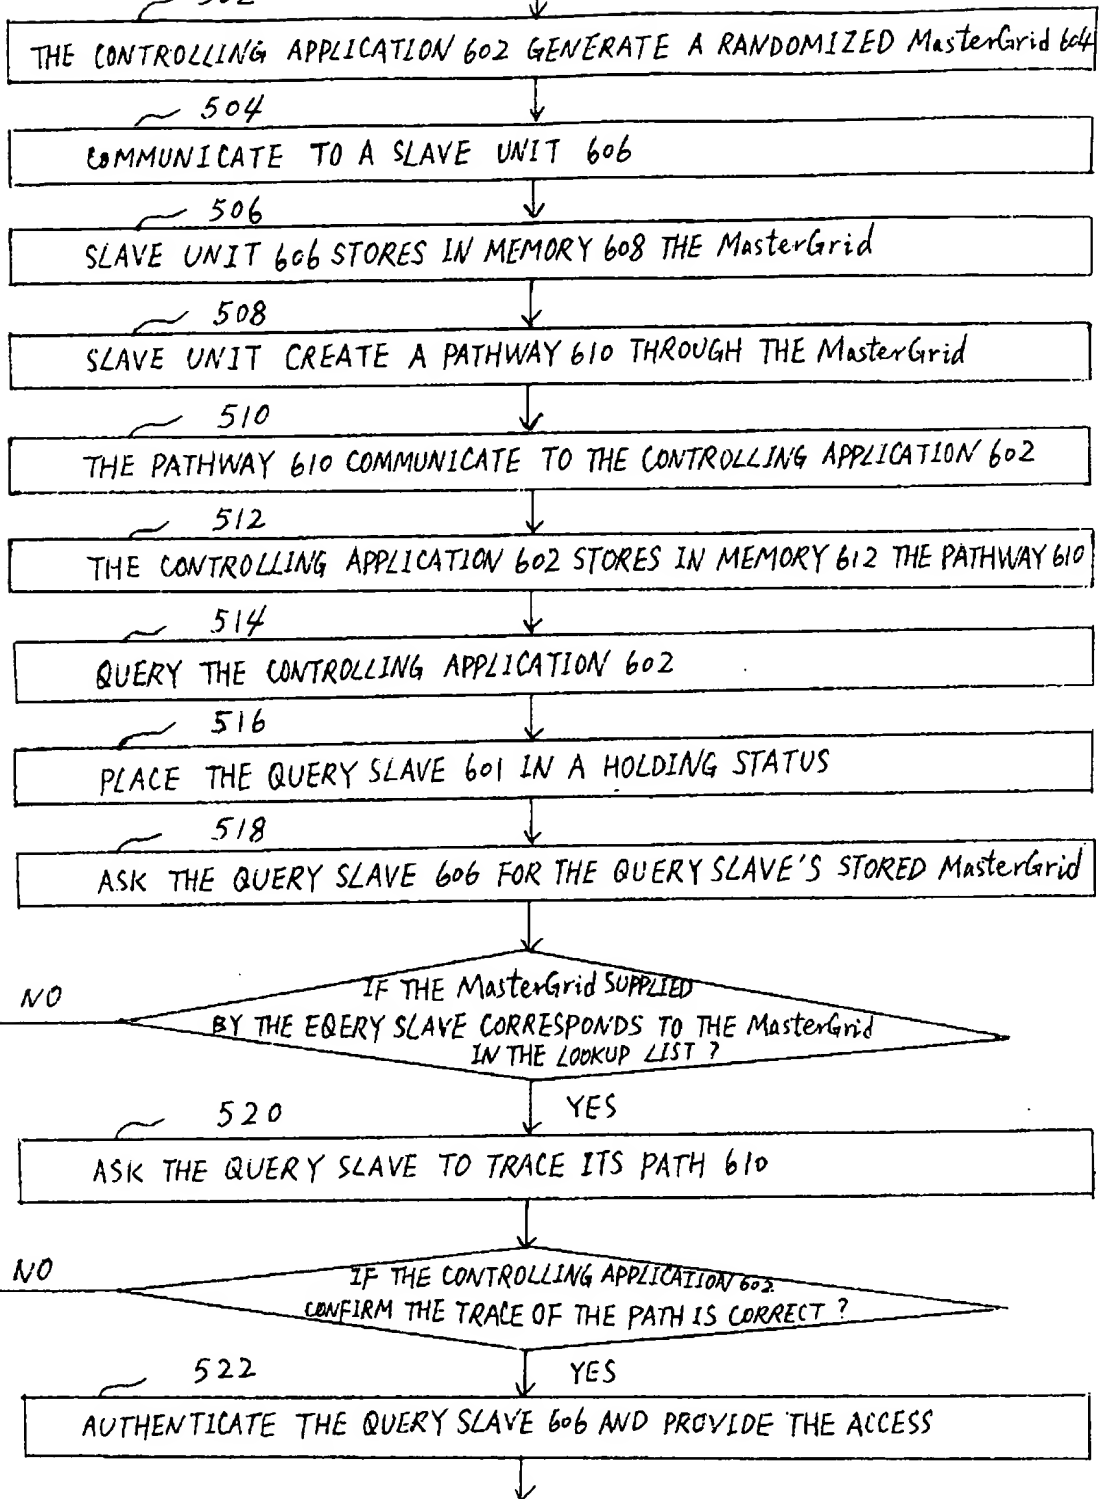 THE CONTROLLING APPLICATION 602 GENERATE A RANDOMIZED MasterGrid 604
504
COMMUNICATE TO A SLAVE UNIT 606
506
SLAVE UNIT 606 STORES IN MEMORY 608 THE MasterGrid
508
SLAVE UNIT CREATE A PATHWAY 610 THROUGH THE MasterGrid
510
THE PATHWAY 610 COMMUNICATE TO THE CONTROLLING APPLICATION 602
512
THE CONTROLLING APPLICATION 602 STORES IN MEMORY 612 THE PATHWAY 610
514
QUERY THE CONTROLLING APPLICATION 602
516
PLACE THE QUERY SLAVE 601 IN A HOLDING STATUS
518
ASK THE QUERY SLAVE 606 FOR THE QUERY SLAVE'S STORED MasterGrid
NO
IF THE MasterGrid SUPPLIED
BY THE EQERY SLAVE CORRESPONDS TO THE MasterGrid
IN THE LOOKUP LIST ?
YES
520
ASK THE QUERY SLAVE TO TRACE ITS PATH 610
NO
IF THE CONTROLLING APPLICATION 602
CONFIRM THE TRACE OF THE PATH IS CORRECT ?
YES
522
AUTHENTICATE THE QUERY SLAVE 606 AND PROVIDE THE ACCESS